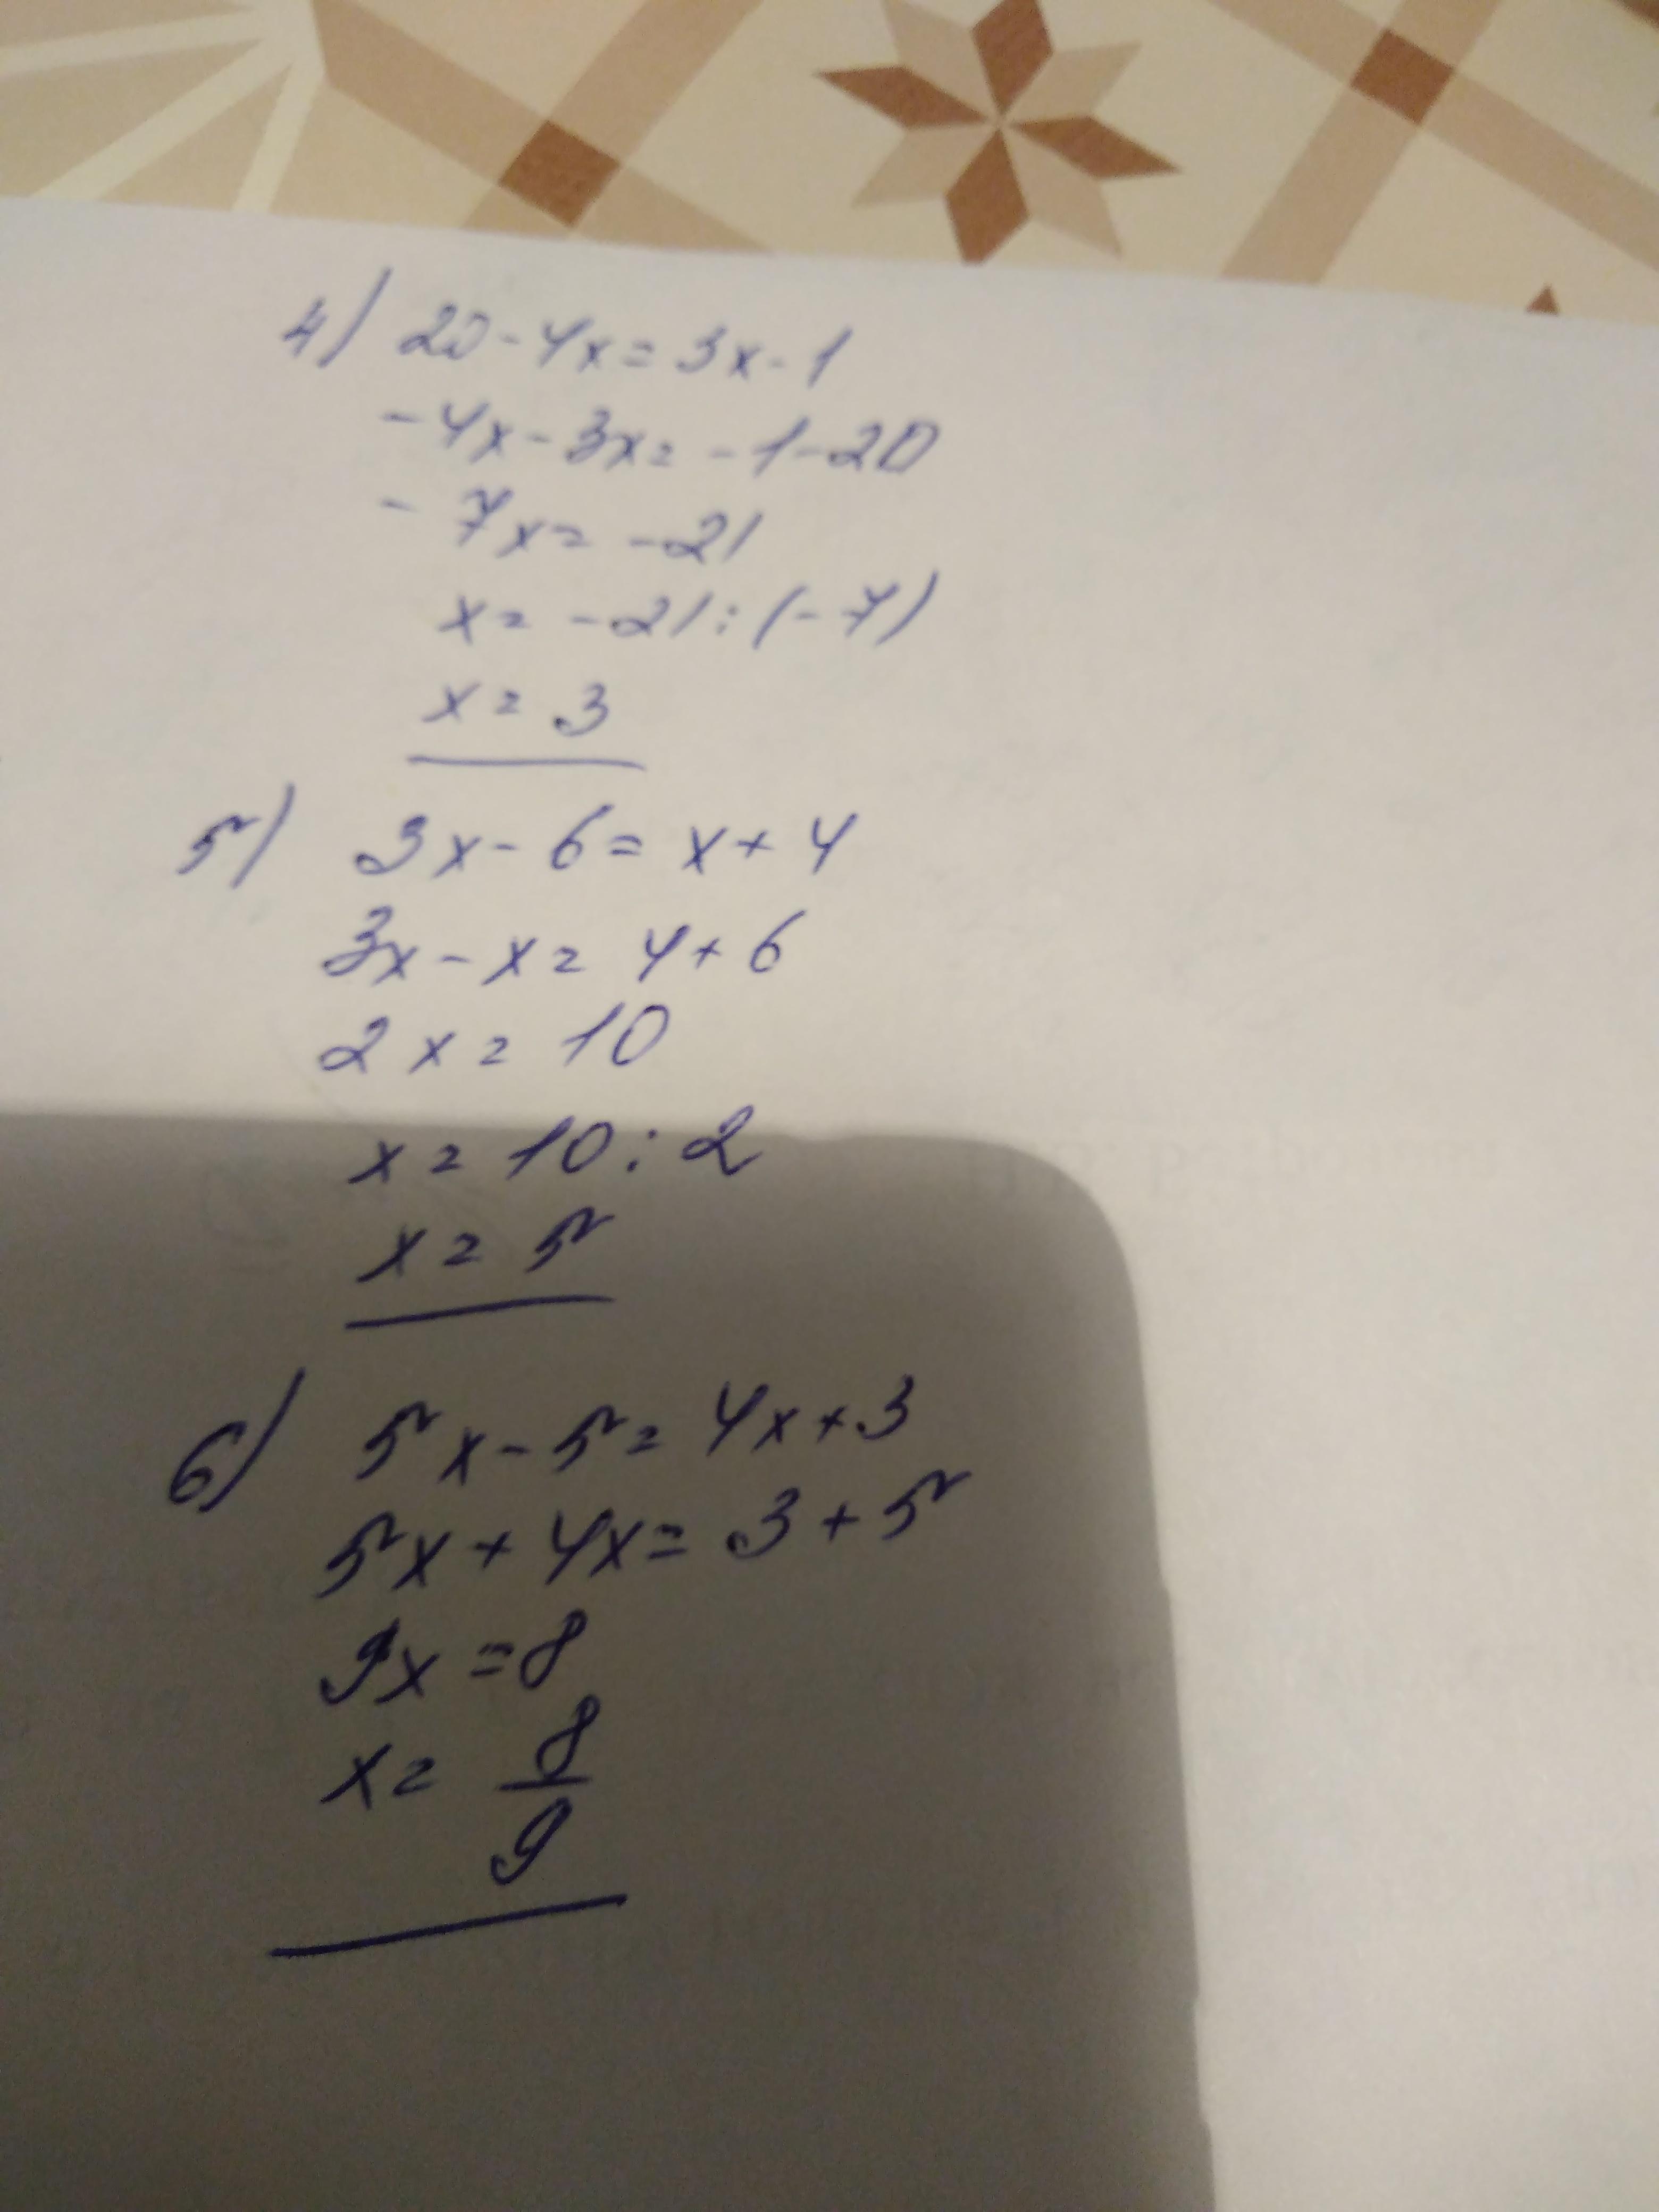 4) 20-4x=3x-1
-4x-3x=-1-20
-7x=-21
x=-21:(-7)
x=3
5) 3x-6=x+4
3x-x=4+6
2x=10
x=10:2
x=5
6) 5x-5=4x+3
5x+4x=3+5
9x=8
x=8/9